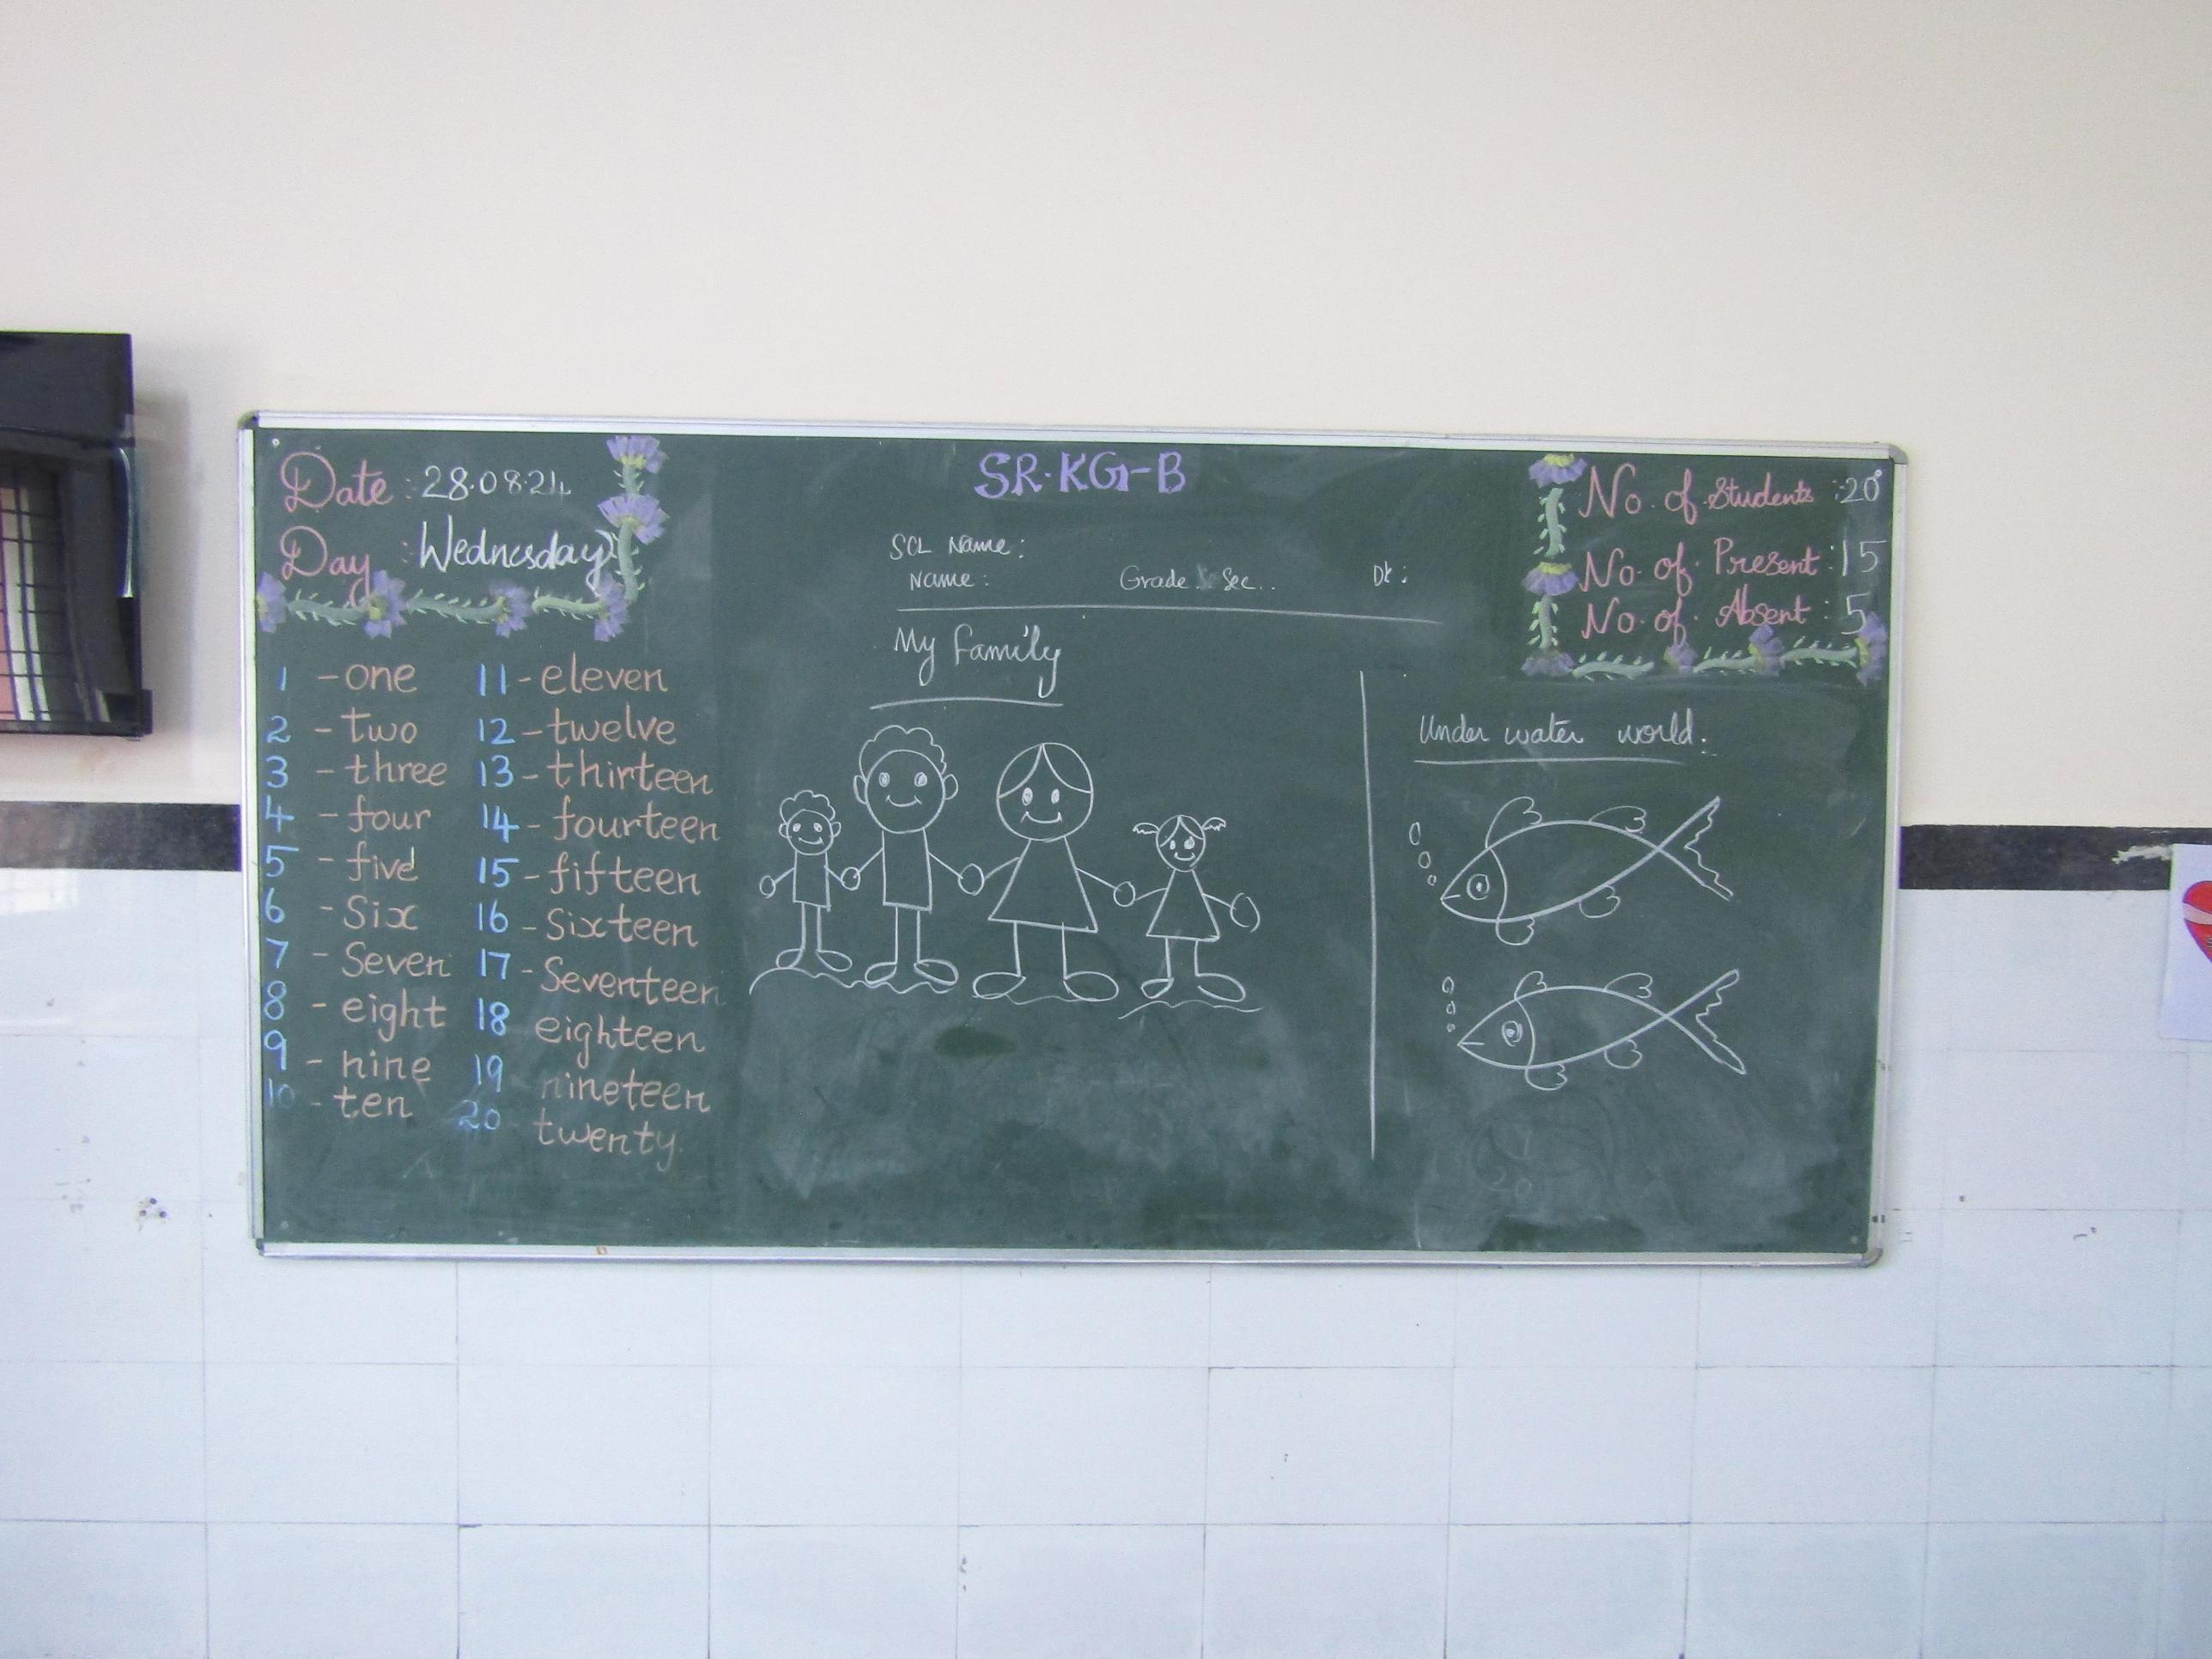 Date : 28.08.24
Day : Wednesday
SR.KG-B
SCL Name :
Name : Grade & Sec.. Dt :
No. of Students : 20
No. of Present : 15
No. of. Absent : 5
1 - one
2 - two
3 - three
4 - four
5 - five
6 - Six
7 - Seven
8 - eight
9 - nine
10 - ten
11 - eleven
12 - twelve
13 - thirteen
14 - fourteen
15 - fifteen
16 - Sixteen
17 - Seventeen
18 eighteen
19 nineteen
20 twenty.
My Family
Under water world :